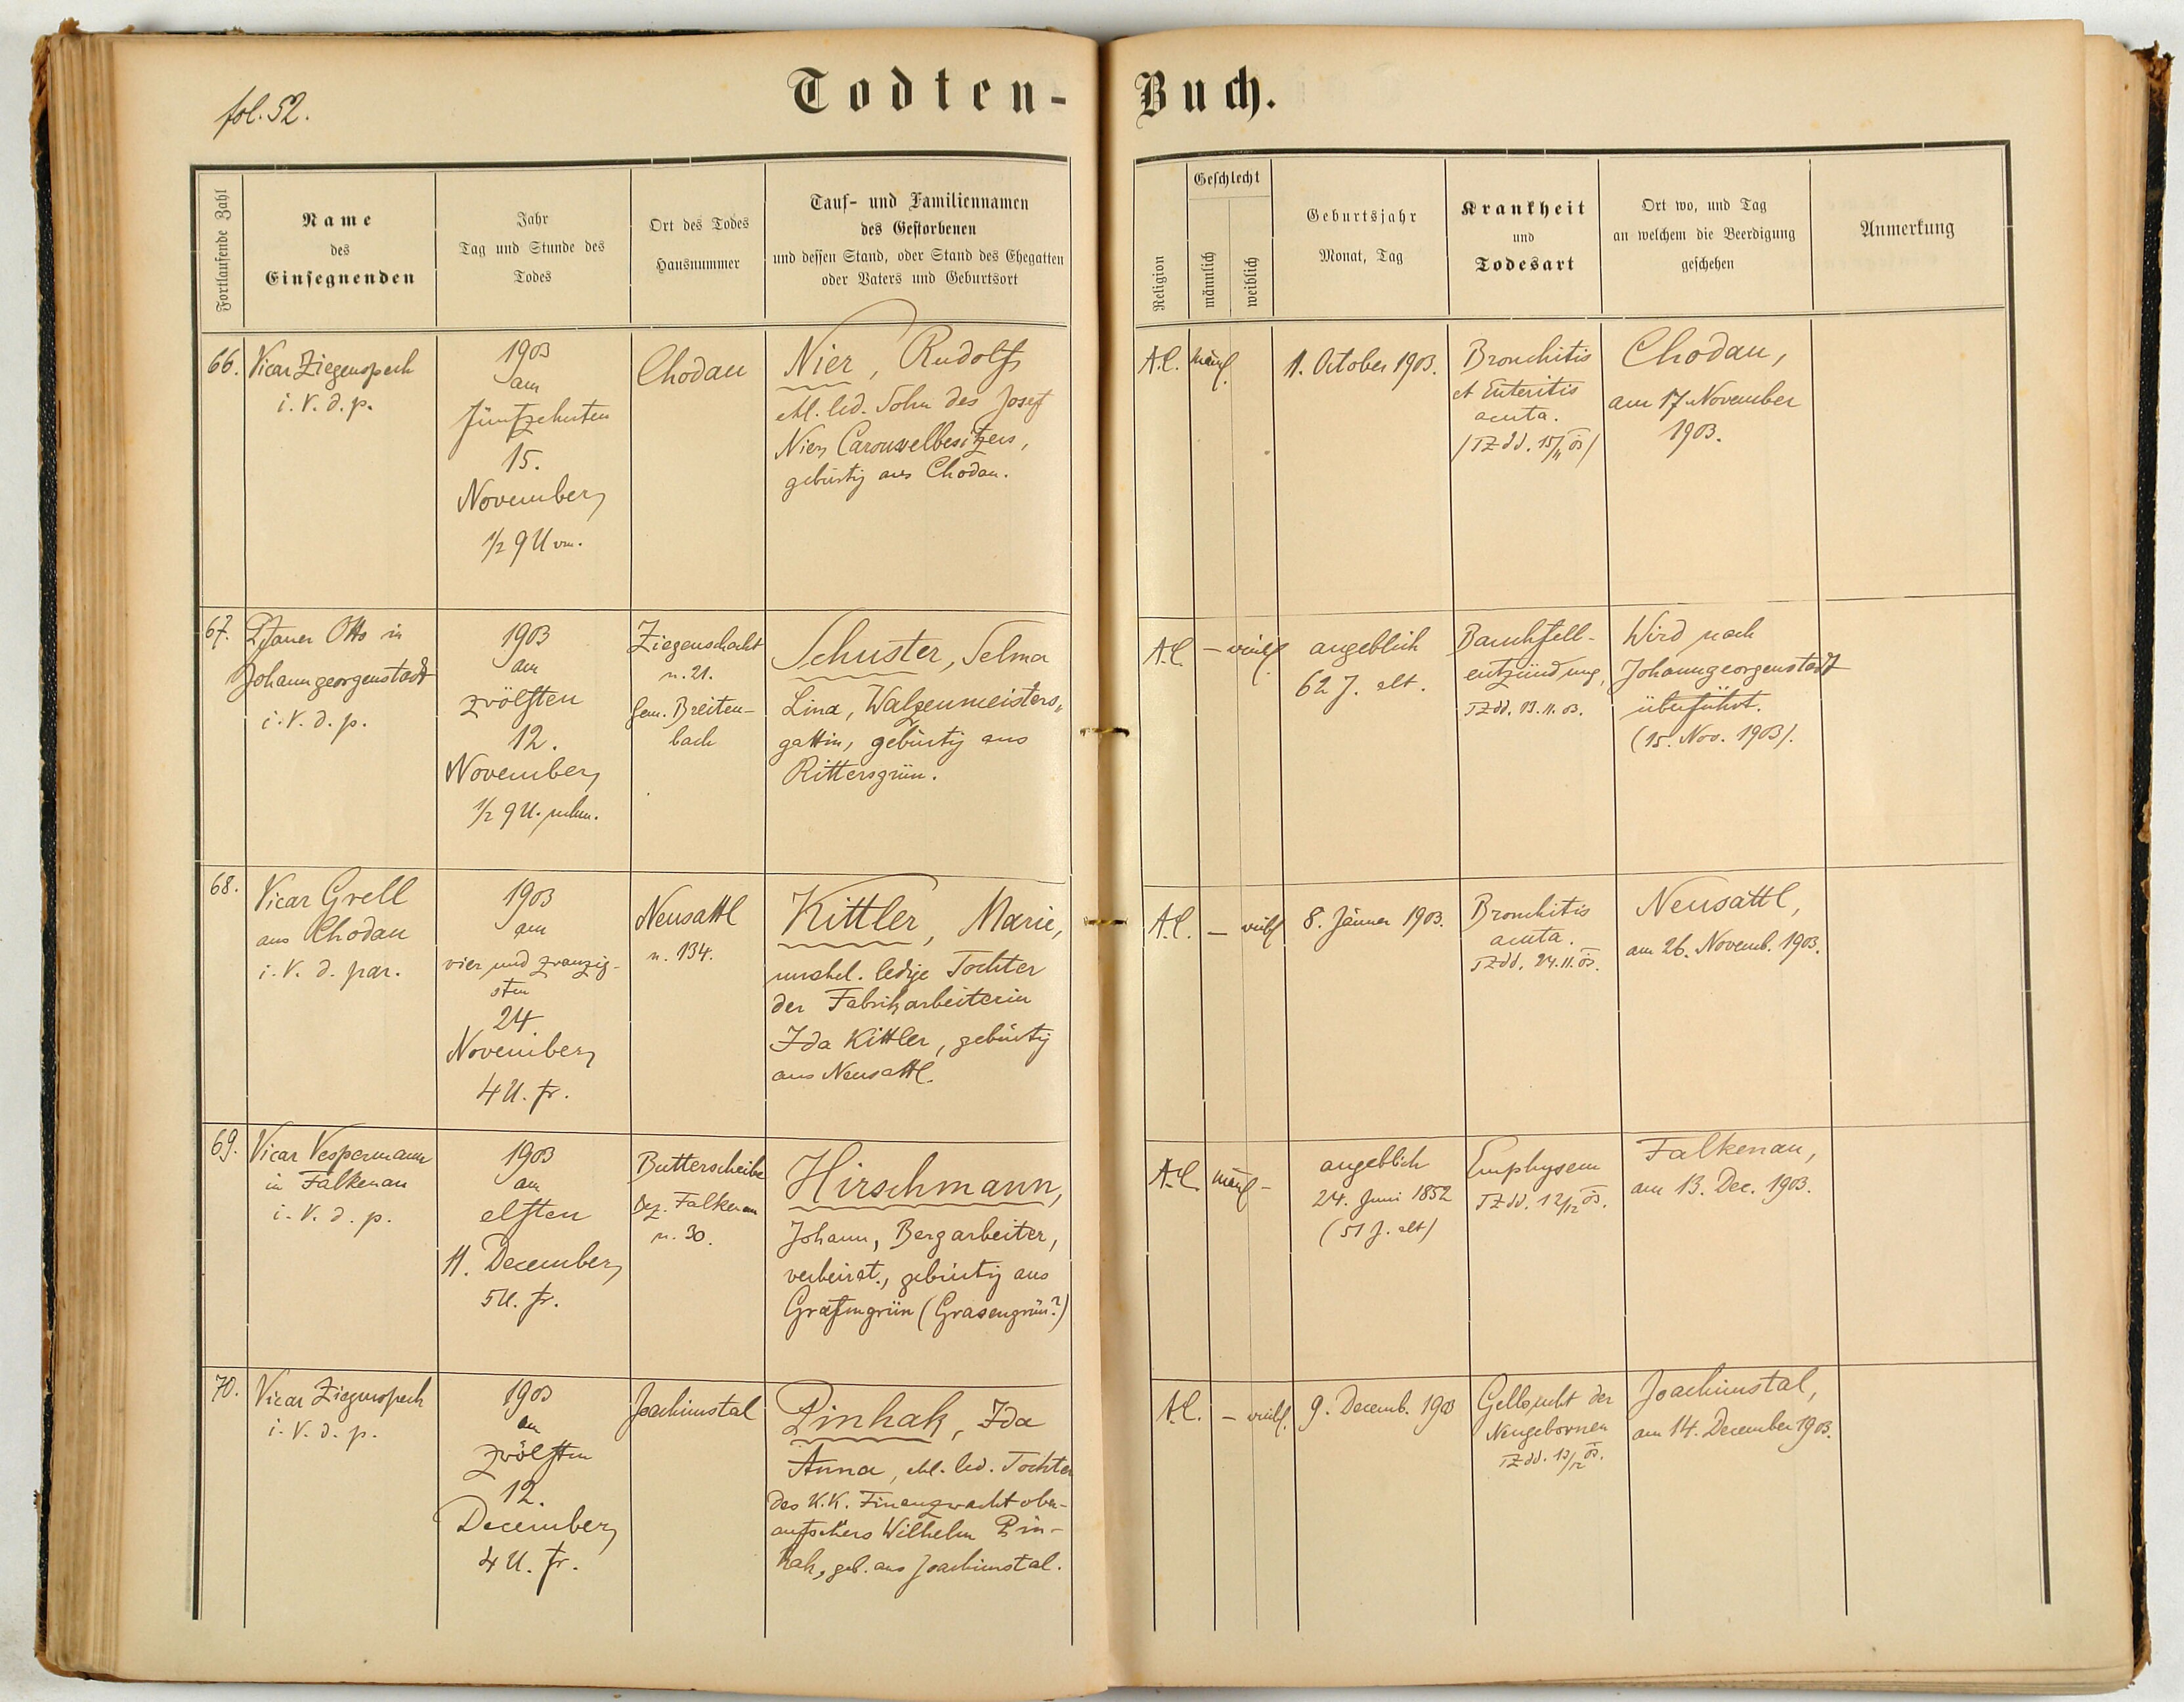 fol. 52.
Todten-Buch.
Fortlaufende Zahl
Name
des
Einsegnenden
Jahr
Tag und Stunde des
Todes
Ort des Todes
Hausnummer
Tauf- und Familiennamen
des Gestorbenen
und dessen Stand, oder Stand des Ehegatten
oder Vaters und Geburtsort
Religion
Geschlecht
männlich
weiblich
Geburtsjahr
Monat, Tag
Krankheit
und
Todesart
Ort wo, und Tag
an welchem die Beerdigung
geschehen
Anmerkung
66.
Vicar Ziegenspeck
i. V. d. p.
1903
am
fünfzehnten
15.
November,
1/2 9 U vm.
Chodau
Nier, Rudolf,
ehl. led. Sohn des Josef
Nier, Carousselbesitzers,
gebürtig aus Chodau.
A.C.
männl.
1. October 1903.
Bronchitis
et Enteritis
acuta.
/TZ dd. 15/11 03/
Chodau,
am 17. November
1903.
67.
Pfarrer Otto in
Johanngeorgenstadt
i. V. d. p.
1903
am
zwölften
12.
November,
1/2 9 U. nchm.
Ziegenschacht
n. 21.
Gem. Breiten-
bach
Schuster, Selma
Lina, Walzenmeisters-
gattin, gebürtig aus
Rittersgrün.
A.C.
– weibl.
angeblich
62 J. alt.
Bauchfell-
entzündung,
TZ dd. 13. 11. 03.
Wird nach
Johanngeorgenstadt
überführt.
(15. Nov. 1903).
68.
Vicar Grell
aus Chodau
i. V. d. par.
1903
am
vier und zwanzig-
sten
24.
November,
4 U. fr.
Neusattl
n. 134.
Kittler, Marie,
unehel. ledige Tochter
der Fabriksarbeiterin
Ida Kittler, gebürtig
aus Neusattl.
A.C.
– weibl
8. Jänner 1903.
Bronchitis
acuta.
TZ dd. 24. 11. 03.
Neusattl,
am 26. Novemb. 1903.
69.
Vicar Vespermann
in Falkenau
i. V. d. p.
1903
am
elften
11. December,
5 U. fr.
Butterscheibe
Bez. Falkenau
n. 30.
Hirschmann,
Johann, Bergarbeiter,
verheirat., gebürtig aus
Grafengrün (Grasengrün?)
A.C.
männl –
angeblich
24. Juni 1852
(51 J. alt)
Emphysem
TZ dd. 12/12 03.
Falkenau,
am 13. Dec. 1903.
70.
Vicar Ziegenspeck
i. V. d. p.
1903
am
zwölften
12.
December,
4 U. fr.
Joachimstal
Pinhak, Ida
Anna, ehl. led. Tochter
des K.K. Finanzwachtober-
aufsehers Wilhelm Pin-
hak, geb. aus Joachimstal.
A.C.
– weibl.
9. Decemb. 1903
Gelbsucht der
Neugebornen
TZ dd. 13/12 03.
Joachimstal,
am 14. December 1903.